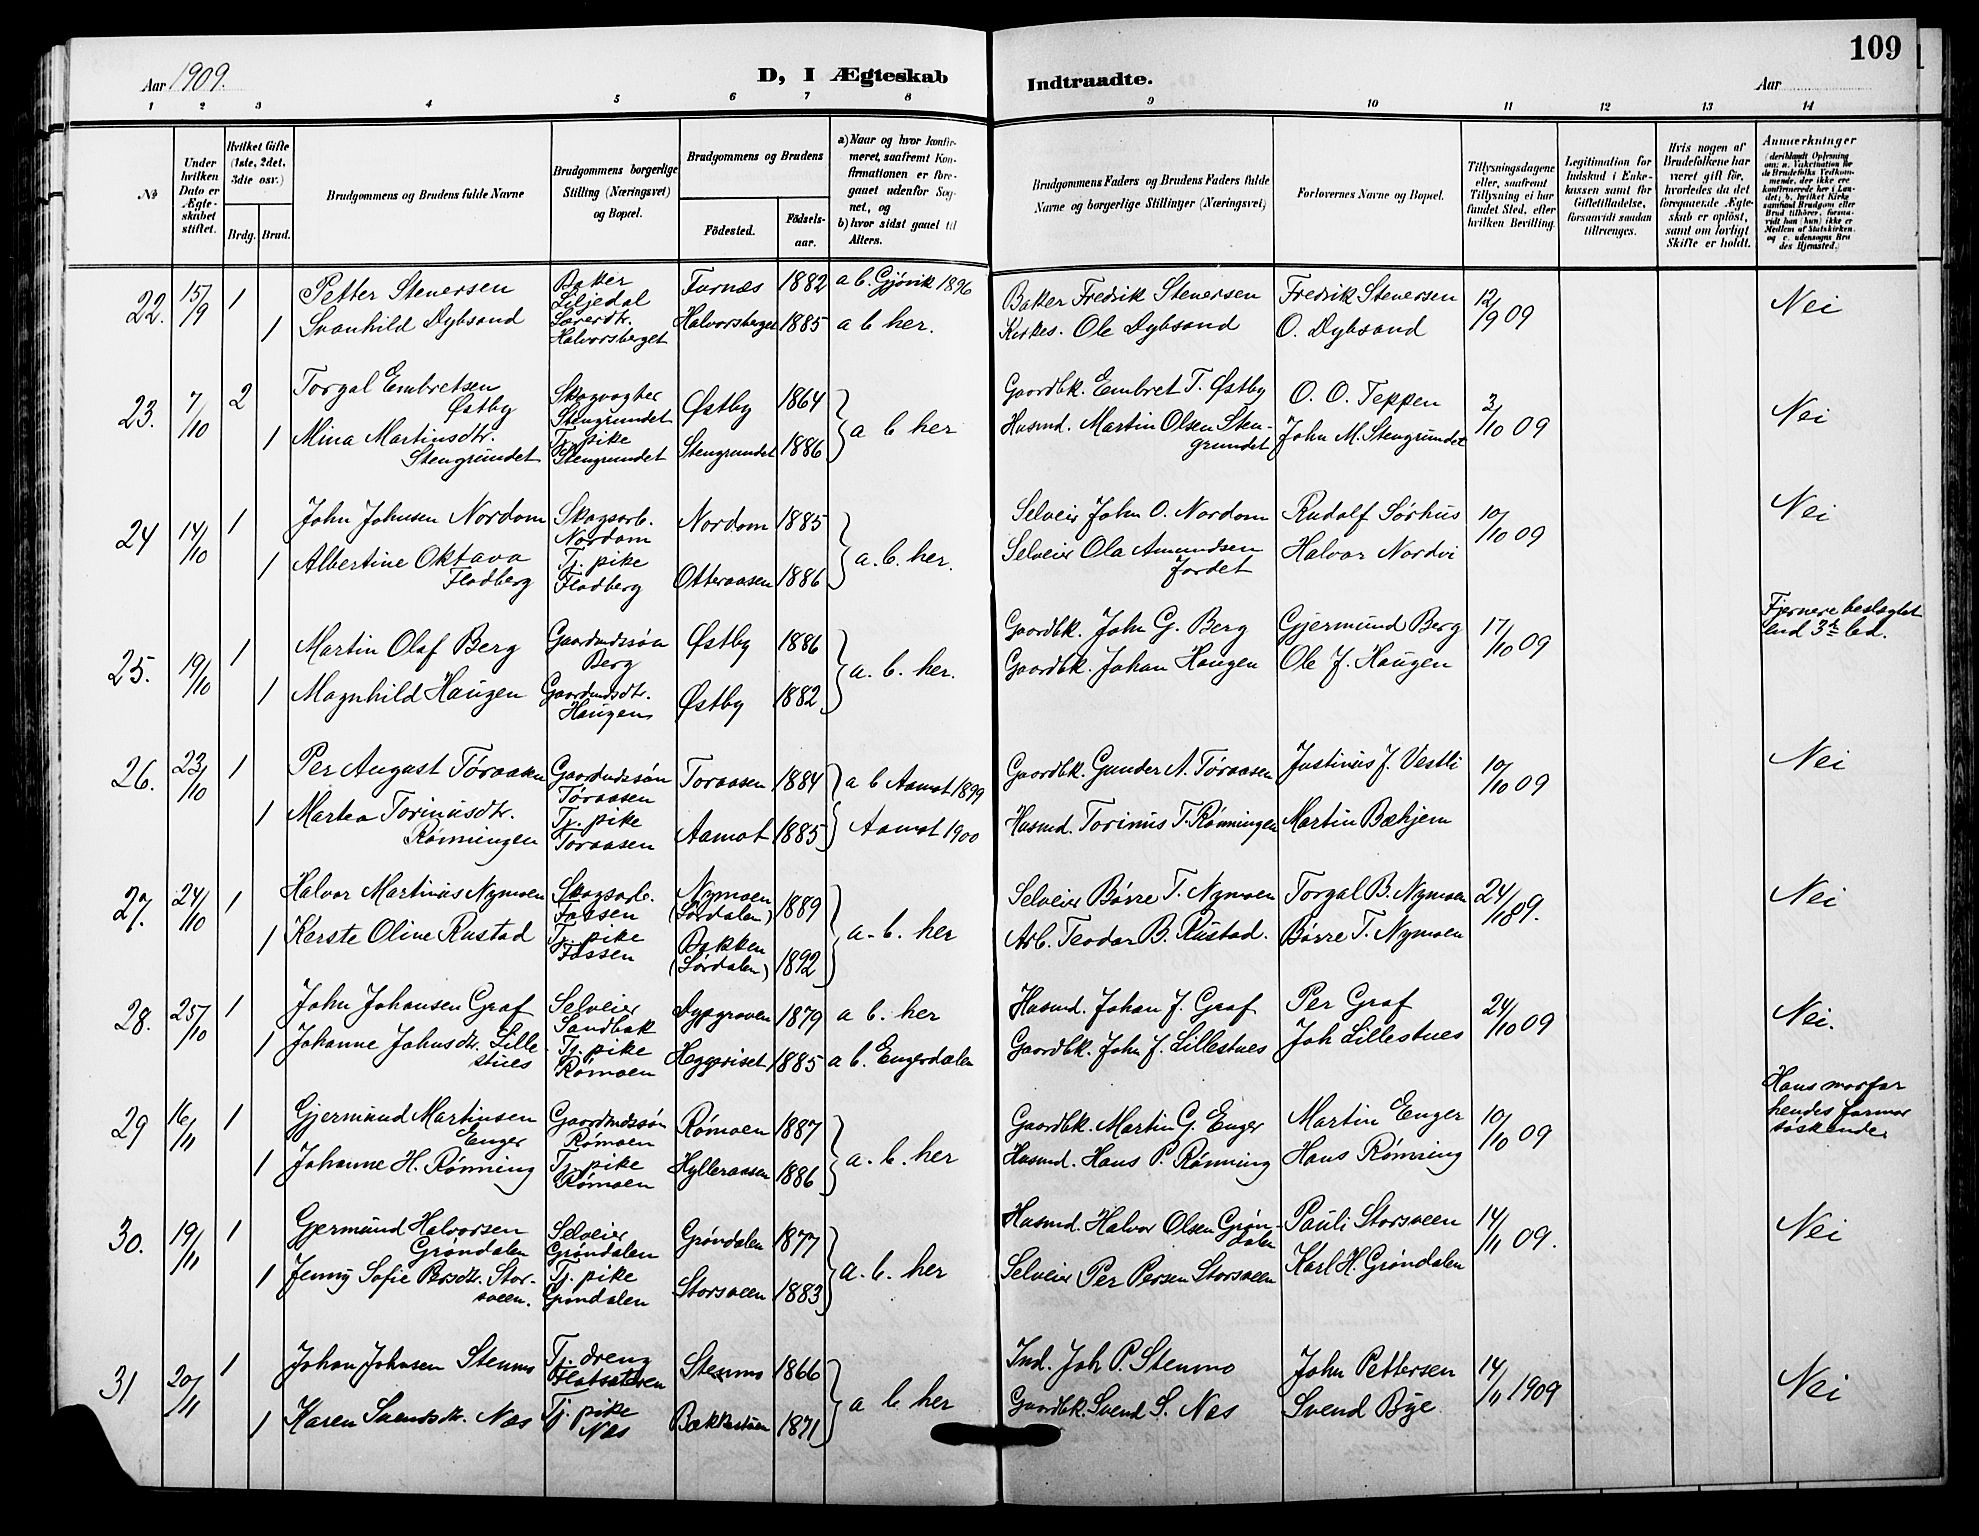 109
Aar 1909.
D, I Ægteskab Indtraadte.
Aar
1 2 3 4 5 6 7 8 9 10 11 12 13 14
№
Under hvilken Dato er Ægteskabet stiftet.
Hvilket Gifte (1ste, 2det, 3die osv.)
Brdg. Brud.
Brudgommens og Brudens fulde Navne
Brudgommens borgerlige Stilling (Næringsvei) og Bopæl.
Brudgommens og Brudens
Födested. Födsels-aar.
a) Naar og hvor konfirmeret, saafremt Konfirmationen er foregaaet udenfor Sognet, og
b) hvor sidst gaaet til Alters.
Brudgommens Faders og Brudens Faders fulde Navne og borgerlige Stillinger (Næringsvei)
Forlovernes Navne og Bopæl.
Tillysningsdagene eller, saafremt Tillysning ei har fundet Sted, efter hvilken Bevilling.
Legitimation for Indskud i Enkekassen samt for Giftetilladelse, forsaavidt saadan tiltrænges.
Hvis nogen af Brudefolkene har været gift för, hvorledes da det foregaaende Ægteskab er oplöst, samt om lovligt Skifte er holdt.
Anmærkninger
22. 15/9 1 Petter Stenersen Baker Liljedal Furnæs 1882 a b. Gjøvik 1896 Baker Fredrik Stenersen Fredrik Stenersen 12/9 09 Nei
1 Svanhild Dybsand Lærerdtr. Halvorsberget Halvorsberget 1885 a b her. Kirkes. Ole Dybsand O. Dybsand
23. 7/10 2 Torgal Embretsen Østby Skogvogter Stengrundet Østby 1864 a b her Gaardbk. Embret T. Østby O. O. Teppen 3/10 09 Nei
1 Mina Martinsdtr. Stengrundet Tj. pike Stengrundet Stengrundet 1886 Husmd. Martin Olsen Stengrundet John M. Stengrundet
24 14/10 1 John Johnsen Nordom Skogsarb. Nordom Nordom 1885 a. b. her. Selveier John O. Nordom Rudolf Sørhus 10/10 09 Nei
1 Albertine Oktava Flodberg Tj. pike Flodberg Otteraasen 1886 Selveier Ola Amundsen Jordet Halvor Nordvi
25. 19/10 1 Martin Olaf Berg Gaardmdssøn Berg Østby 1886 a. b. her. Gaardbk. John G. Berg Gjermund Berg 17/10 09 Fjernere beslægtet end 3die led.
1 Magnhild Haugen Gaardmdsdtr. Haugen Østby 1882 Gaardbk. Johan Haugen Ole J. Haugen
26. 23/10 1 Per August Tøraasen Gaardmdssøn Tøraasen Toraasen 1884 a b Aamot 1899 Gaardbk. Gunder A. Tøraasen Justinus J. Vestli 10/10 09 Nei
1 Martea Torinusdtr. Rønningen Tj. pike Toraasen Aamot 1885 Aamot 1900 Husmd. Torinus T. Rønningen Martin Bækjem
27. 24/10 1 Halvor Martinus Nymoen Skogsarb. Fossen Nymoen (Sørdalen) 1889 a. b. her Selveier Børre T. Nymoen Torgal B. Nymoen 24/10 09. Nei
1 Kerste Oline Rustad Tj. pike Fossen Bakken (Sørdalen) 1892 Arb. Teodor B. Rustad. Børre T. Nymoen
28. 25/10 1 John Johansen Graf Selveier Sandbak Dypgraven 1879 a b. her Husmd. Johan J. Graf Per Graf 24/10 09 Nei.
1 Johanne Johnsdtr. Lillestues Tj. pike Rømoen Heggeriset 1885 a b. Engerdalen Gaardbk. John J. Lillestues Joh Lillestues
29 16/11 1 Gjermund Martinsen Enger Gaardmdssøn Rømoen Rømoen 1887 a. b. her Gaardbk. Martin G. Enger Martin Enger 10/10 09 Hans morfar hendes farmor søskende
1 Johanne H. Rønning Tj. pike Rømoen Hylleraasen 1886 Husmd. Hans P. Rønning Hans Rønning
30. 19/11 1 Gjermund Halvorsen Grøndalen Selveier Grøndalen Grøndalen 1877 a. b. her Husmd. Halvor Olsen Grøndalen Pauli Storsveen 14/11 09. Nei
1 Jenny Sofie Persdtr. Storsveen. Tj. pike Grøndalen Storsveen 1883 Selveier Per Persen Storsveen Karl H. Grøndalen
31 20/11 1 Johan Johnsen Stenmo Tj. dreng Flatsæteren Stenmo 1866 a b her Ind. Joh P. Stenmo John Pettersen 14/11 1909 Nei
1 Karen Svendsdtr. Næs Tj. pike Næs 1871 Gaardbk. Svend S. Næs Svend Bye